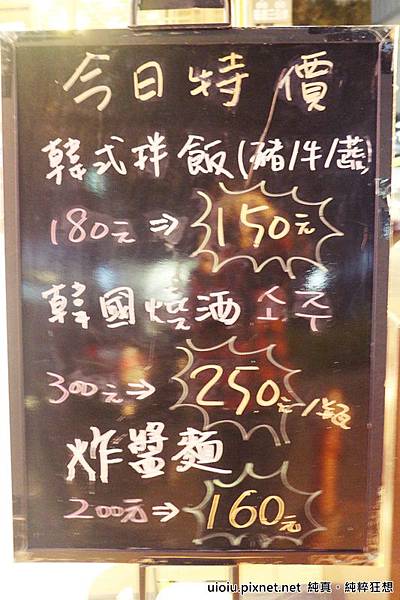 今日特價
韓式拌飯(豬/牛/蔬)
180元⇒150元
韓國燒酒 소주
300元⇒250元/瓶
炸醬麵
200元⇒160元
uioiu.pixnet.net 純真‧純粹狂想